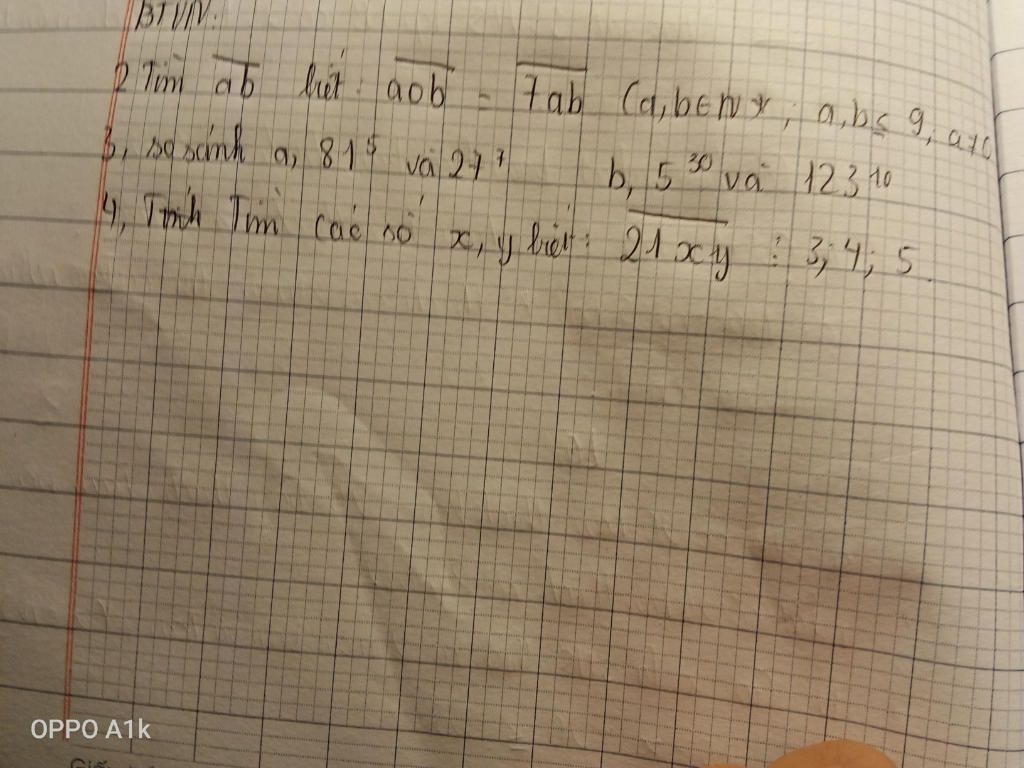 BTVN:
2 Tìm ab biết: a0b = 7ab (a,b∈N*; a,b≤ 9; a≠0
3, so sánh a, 81⁵ và 27⁷ b, 5³⁰ và 123¹⁰
4, Tính Tìm các số x, y biết: 21xy ⋮ 3; 4; 5
OPPO A1k